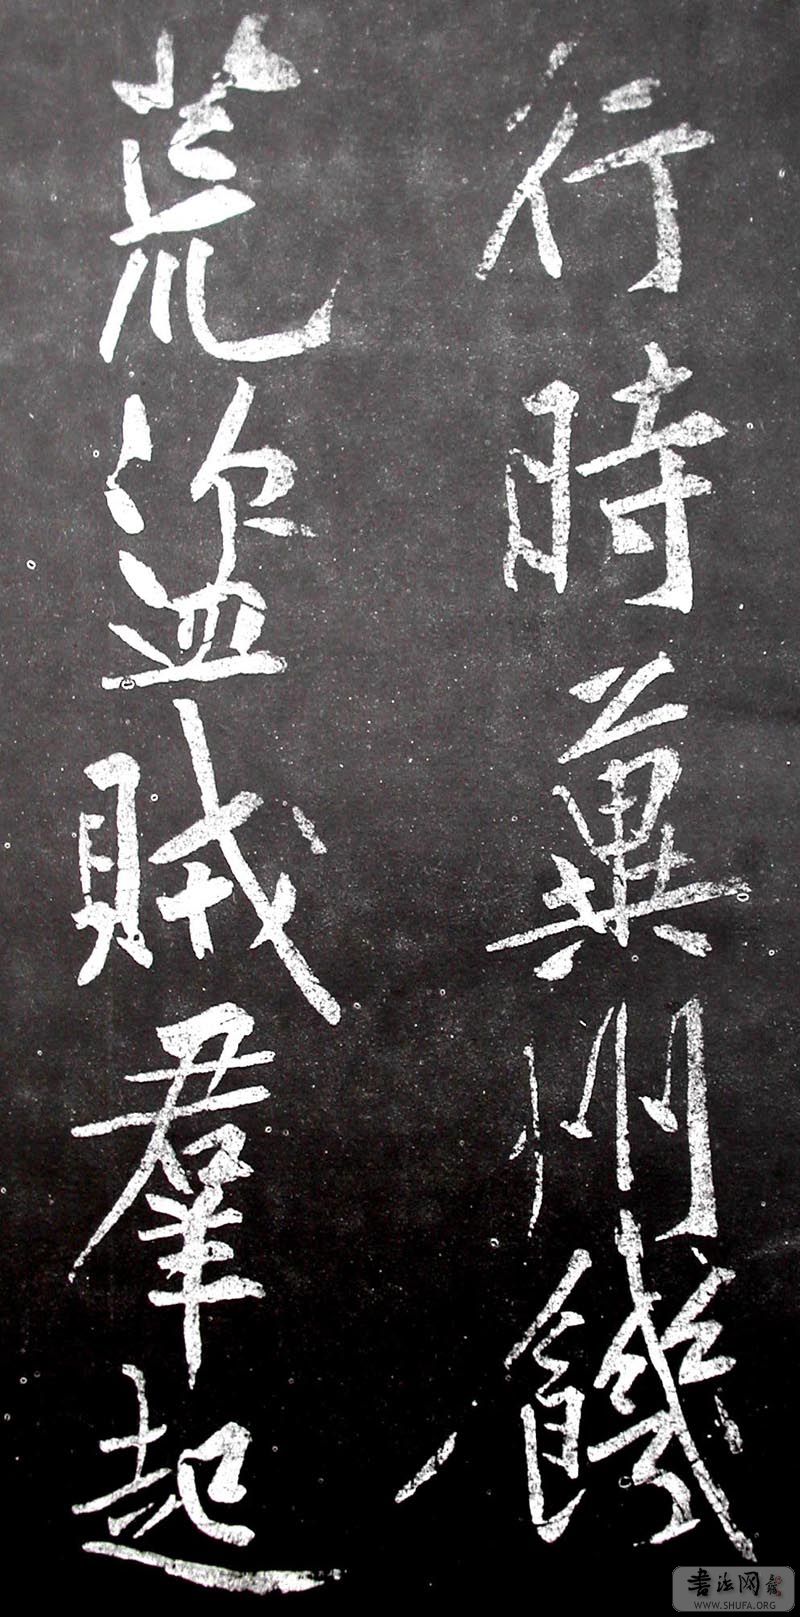 行時冀州饑
荒盜賊羣起
書法网
WWW.SHUFA.ORG